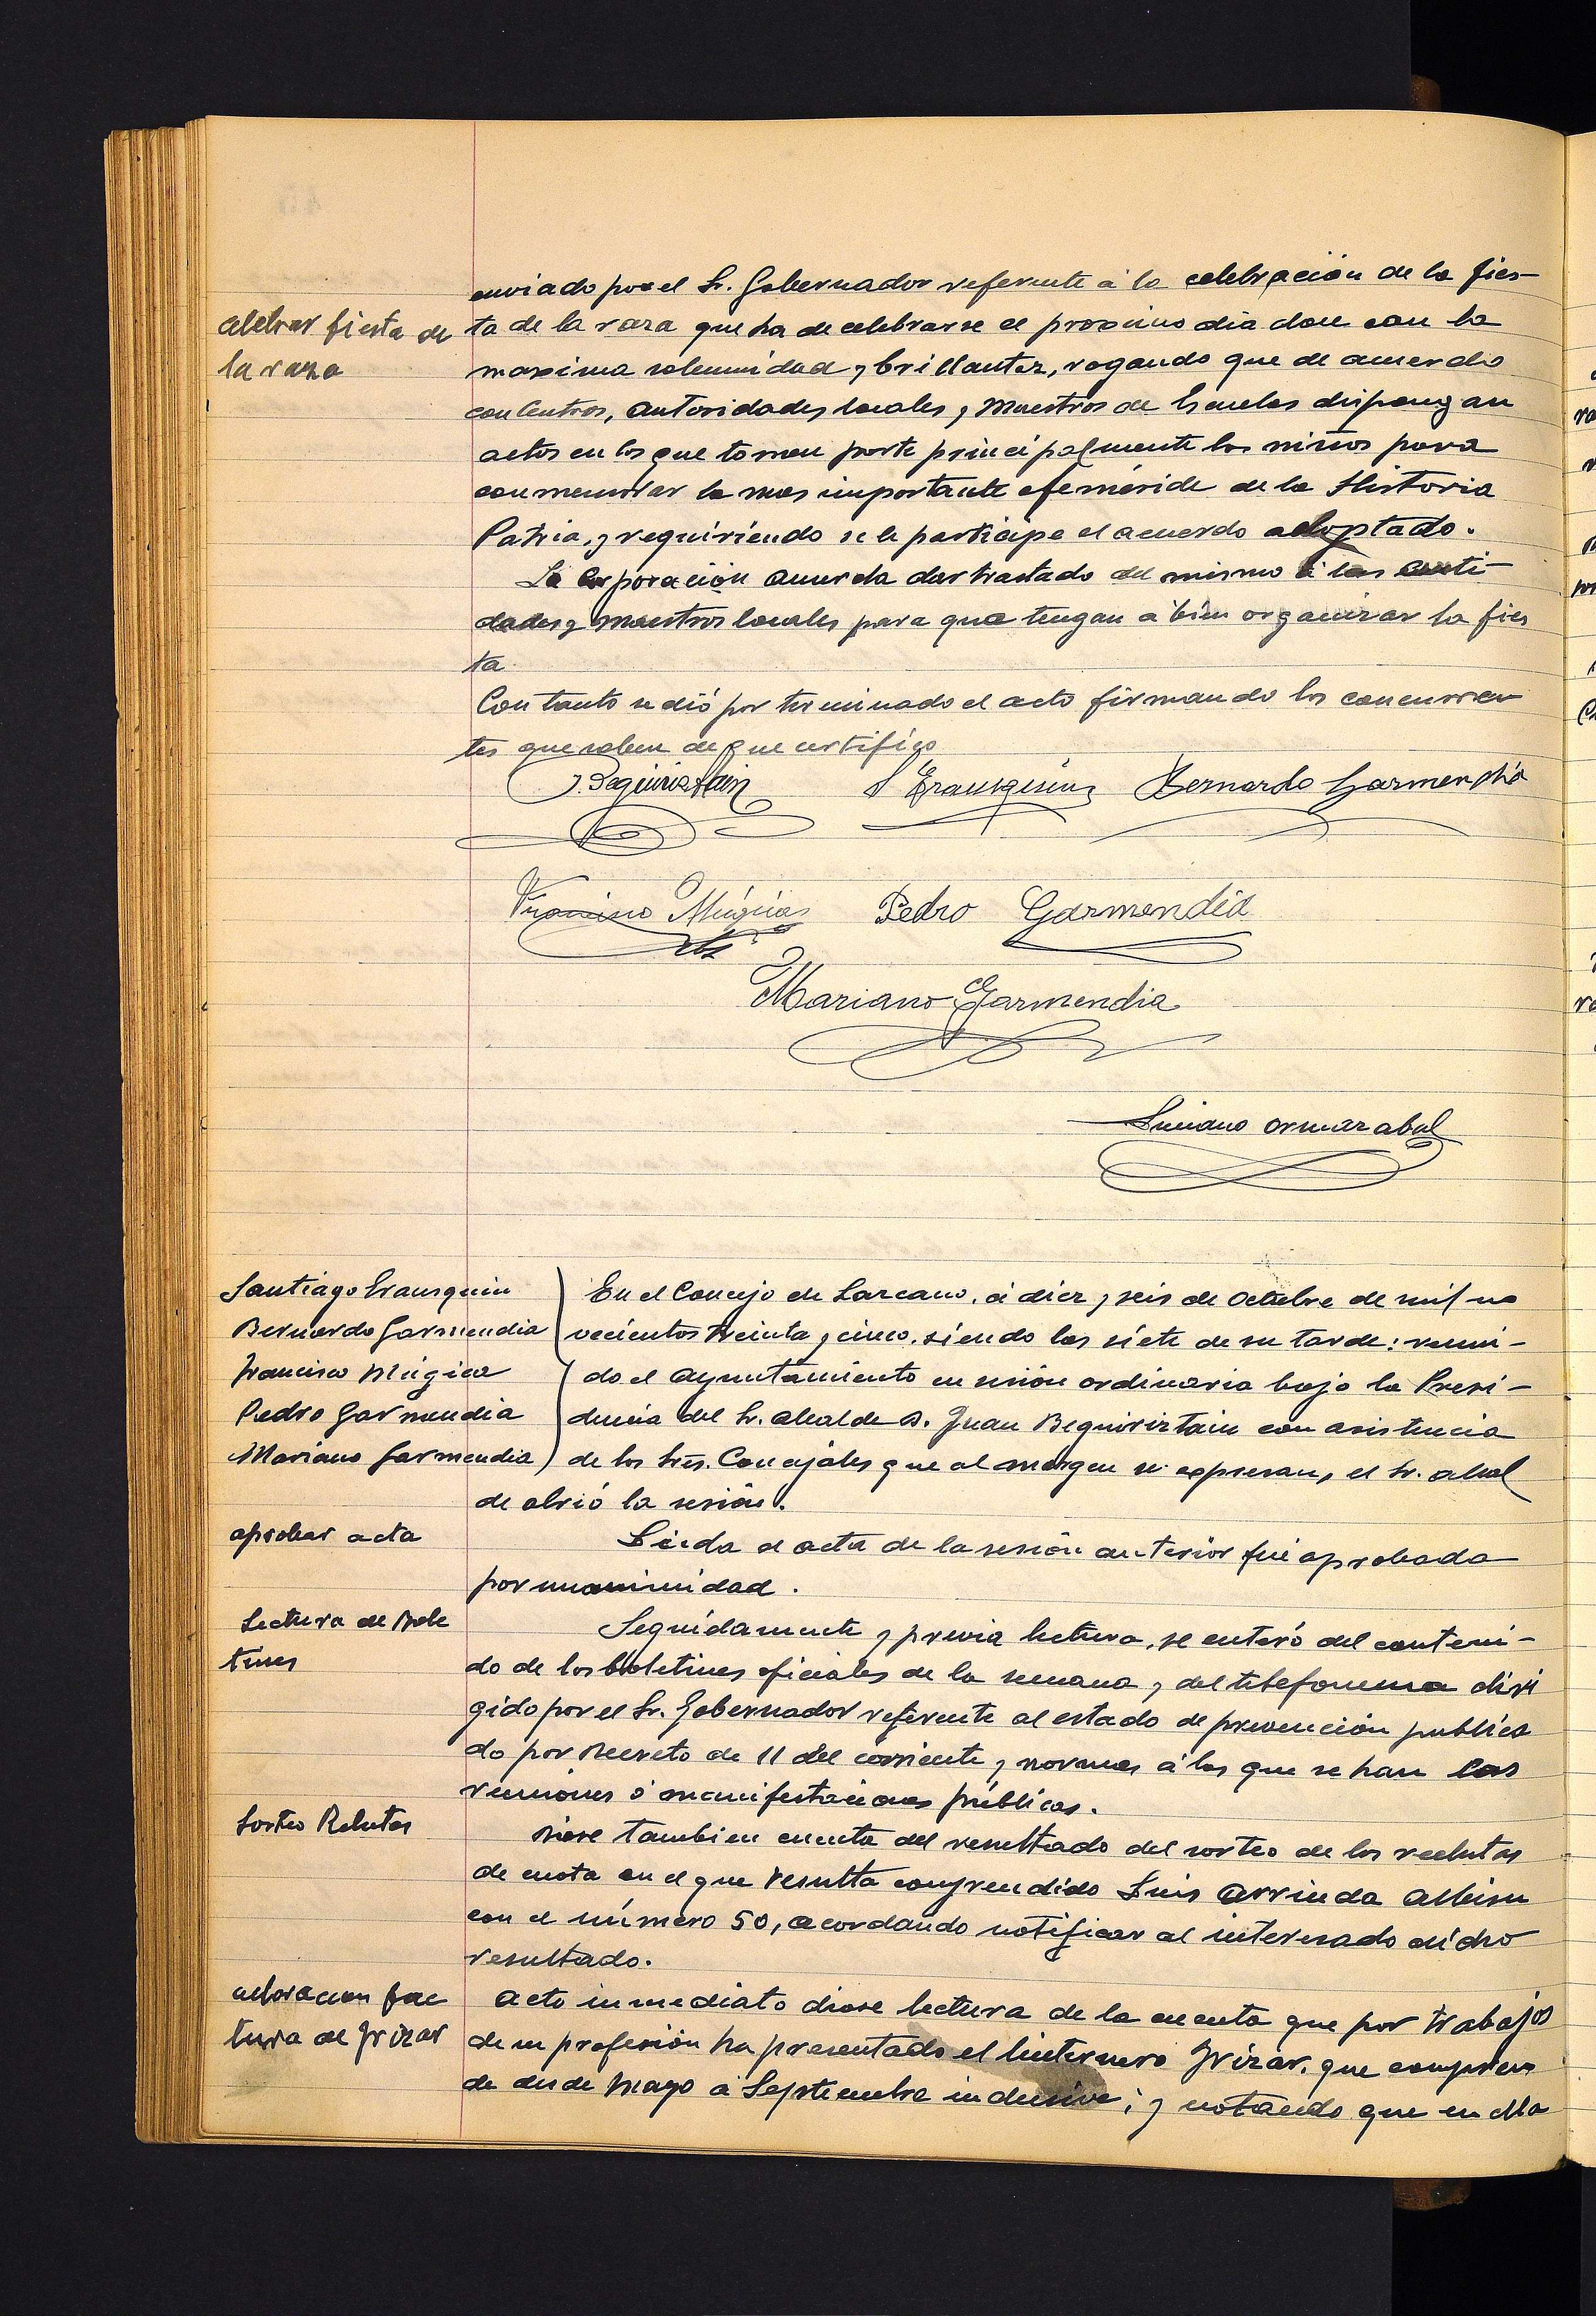 enviado por el Sr. Gobernador referente á la celebración de la fies-
celebrar fiesta de
la raza
ta de la raza que ha de celebrarse el proximo dia doce con la
maxima solemnidad y brillantez, rogando que de acuerdo
con Centros, autoridades locales y Maestros de Escuelas dispongan
actos en los que tomen parte principalmente los niños para
conmemorar la mas importante efeméride de la Historia
Patria, y requiriendo se le participe el acuerdo adoptado.
La Corporación acuerda dar traslado del mismo á las enti-
dades y maestros locales para que tengan á bien organizar la fies
ta
Con tanto se dió por terminado el acto firmando los concurren
tes que saben de que certifico
J. Beguiristain S Erausquin Bernardo Garmendia
Francisco Múgica Pedro Garmendia
Mariano Garmendia
Luciano Ormazabal
Santiago Erausquin
Bernardo Garmendia
Francisco Múgica
Pedro Garmendia
Mariano Garmendia
En el Concejo de Lazcano, á diez y seis de Octubre de mil no
vecientos treinta y cinco, siendo las siete de su tarde: reuni-
do el Ayuntamiento en sesión ordinaria bajo la Presi-
dencia del Sr. Alcalde D. Juan Beguiriztain con asistencia
de los Sres. Concejales que al margen se expresan, el Sr. Alcal
de abrió la sesión.
aprobar acta
Leida el acta de la sesión anterior fué aprobada
por unanimidad.
Lectura de Bole
tines
Seguidamente y previa lectura, se enteró del conteni-
do de los boletines oficiales de la semana y del telefonema diri
gido por el Sr. Gobernador referente al estado de prevención publica
do por Decreto de 11 del corriente y normas á las que se han las
reuniones ó manifestaciones públicas.
Sorteo Reclutas
Diose tambien cuenta del resultado del sorteo de los reclutas
de cuota en el que resulta comprendido Luis Arrieda Albisu
con el número 50, acordando notificar al interesado dicho
resultado.
aclaracion fac
tura de Irizar
Acto inmediato diose lectura de la cuenta que por trabajos
de su profesión ha presentado el linternero Irizar, que compren
de desde Mayo á Septiembre inclusive; y notando que en ella